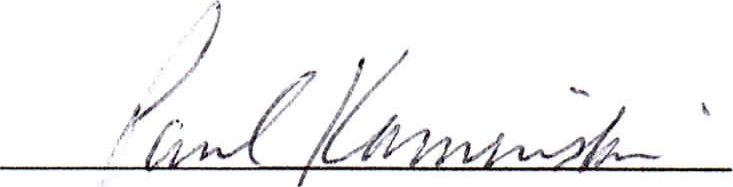 Paul Kaminski